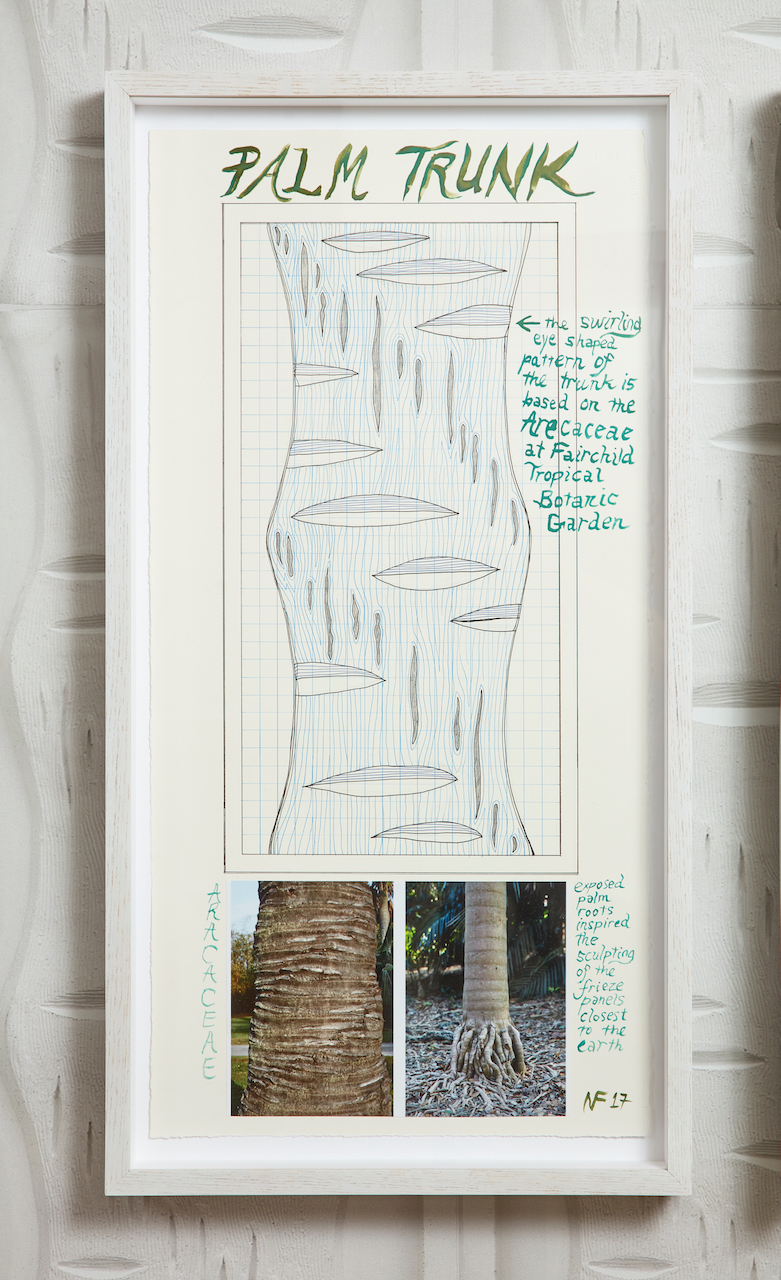 PALM TRUNK
← the swirling
eye shaped
pattern of
the trunk is
based on the
Arecaceae
at Fairchild
Tropical
Botanic
Garden
ARACACEAE
exposed
palm
roots
inspired
the
sculpting
of the
frieze
panels
closest
to the
earth
NF 17